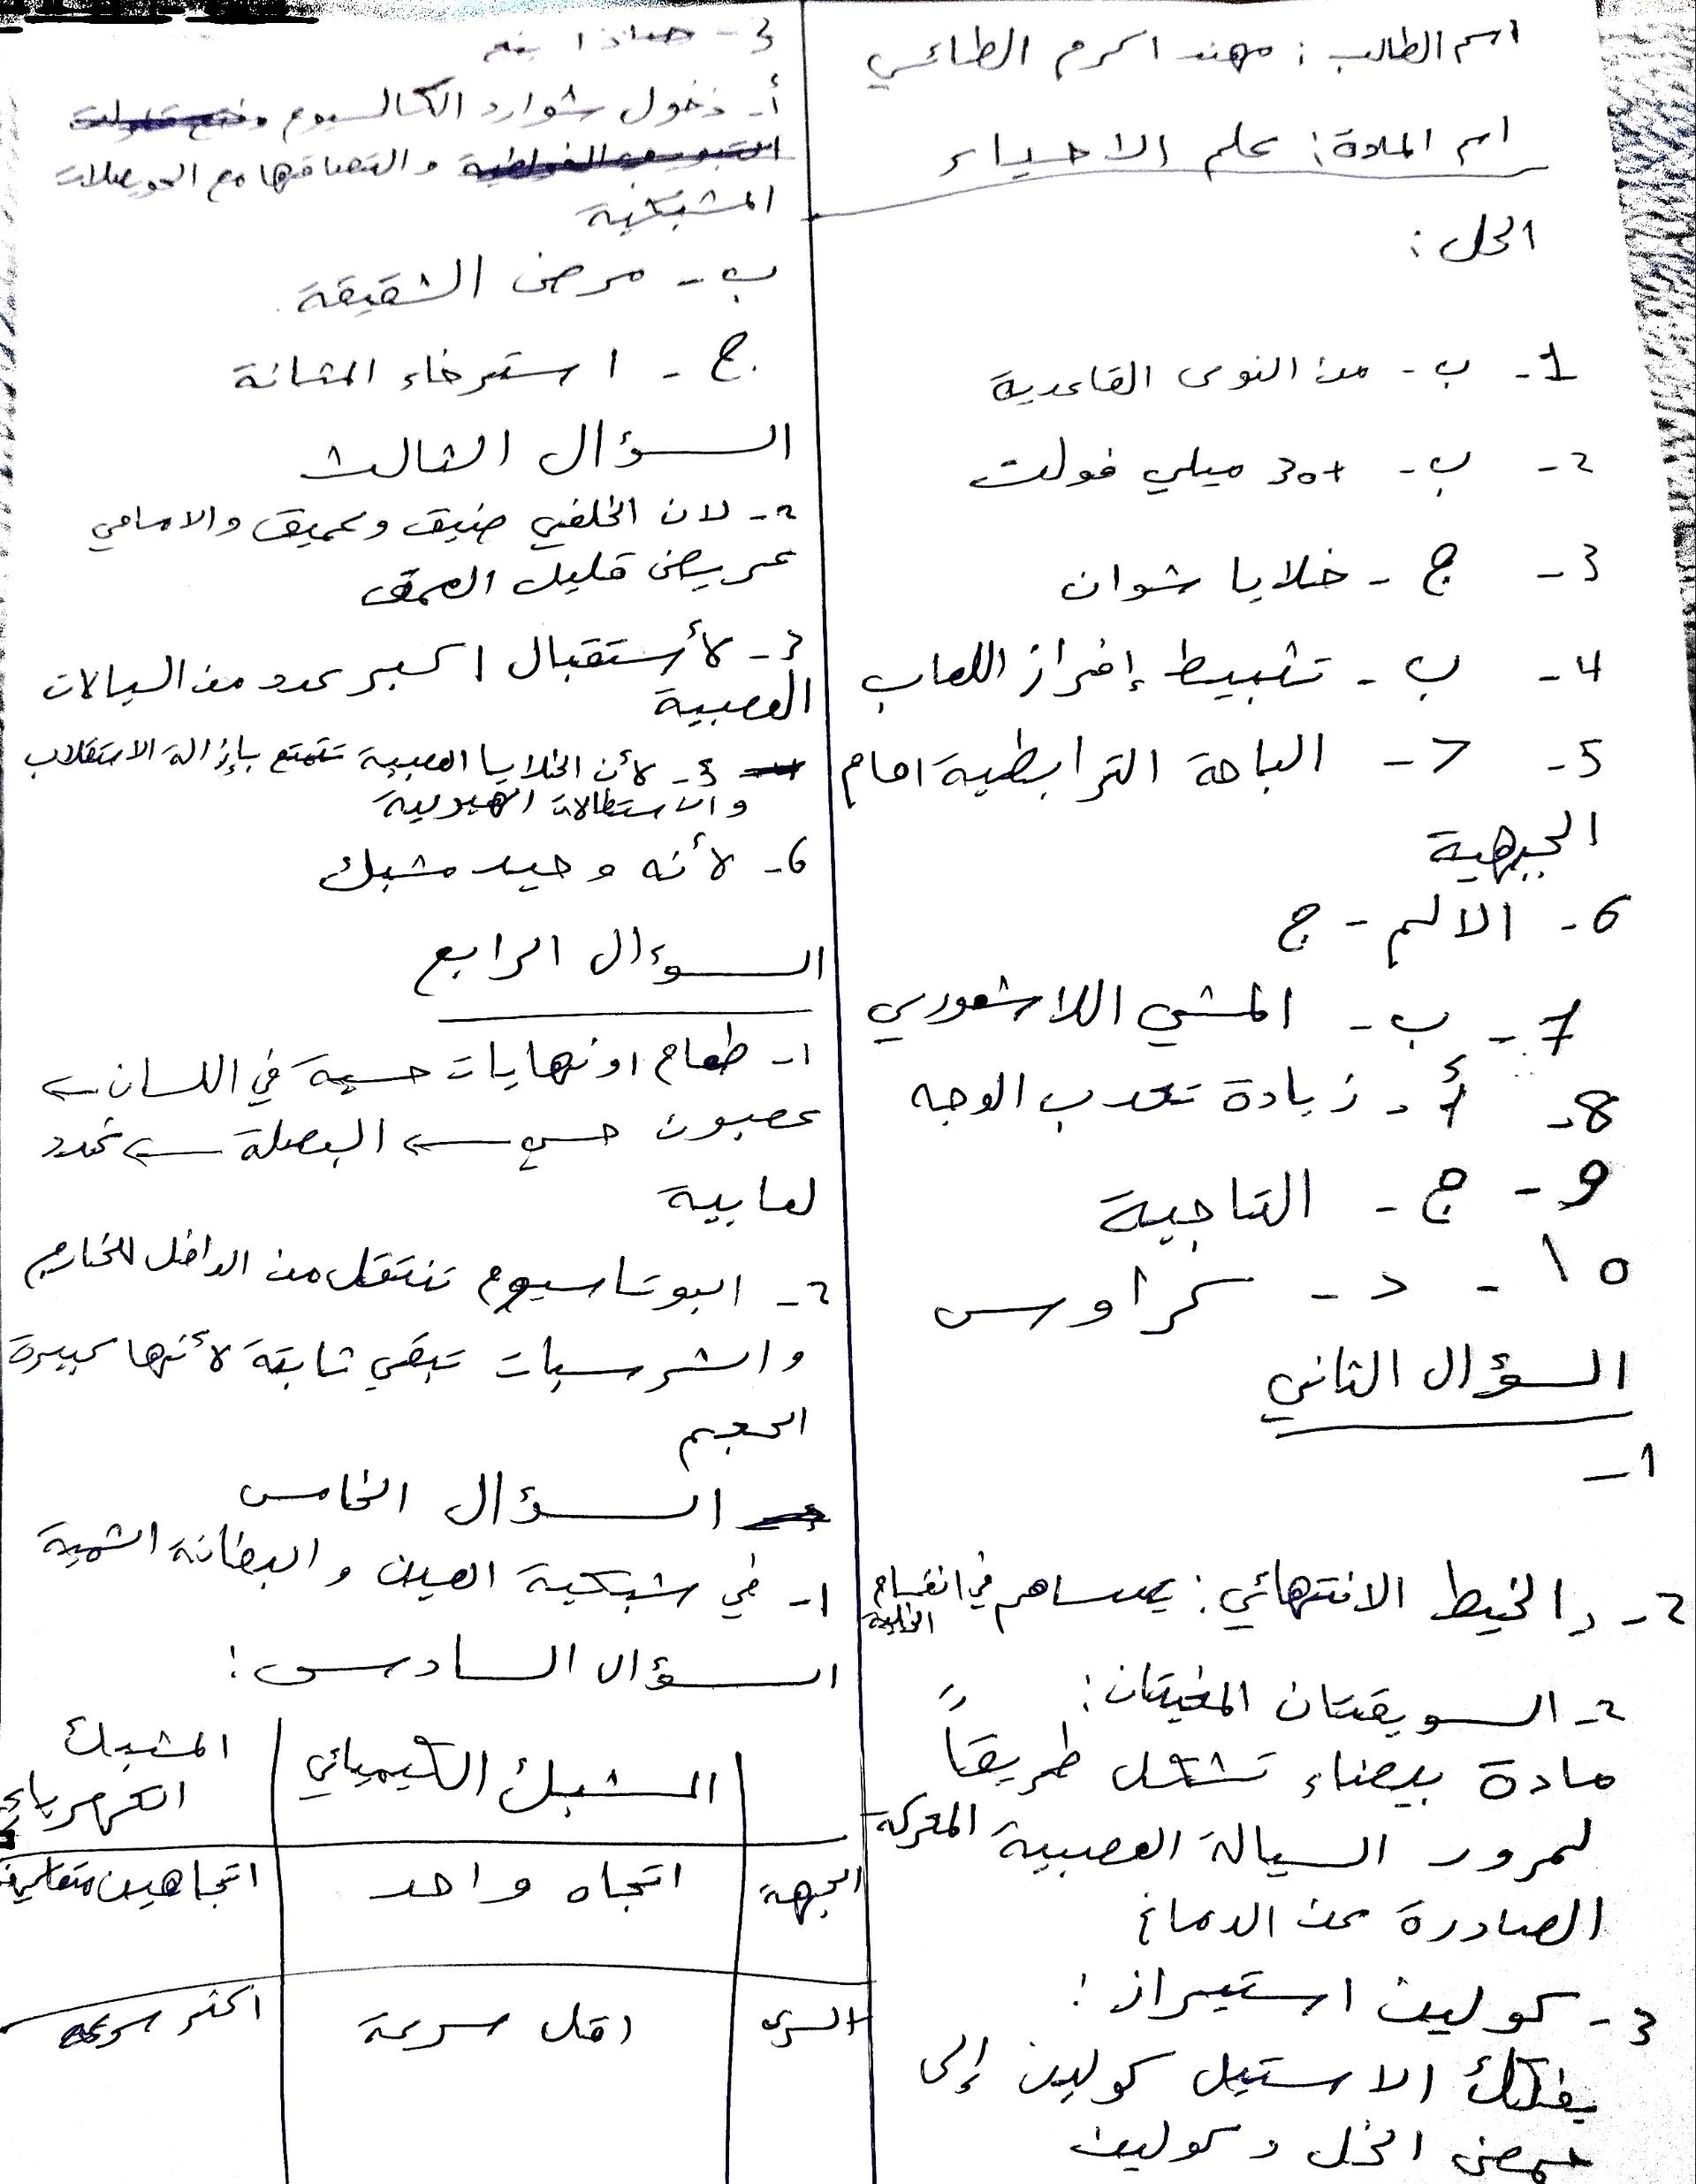 اسم الطالب : مهند اكرم الطائي
اسم المادة : علم الاحياء
الحل :
1- ب - من النوى القاعدية
2- ب - +30 ميلي فولت
3- ج - خلايا شوان
4- ب - تثبيط إفراز اللعاب
5- د - الباحة الترابطية امام
الجبهية
6- الالم - ج
7- ب - المشي اللاشعوري
8- أ - زيادة تحدب الوجه
9- ج - التاجية
10- د - كراوس
السؤال الثاني
1-
2- الخيط الانتهائي : يساهم في انقسام
الخلية
2- السويقتان المخيتان :
مادة بيضاء تشكل طريقاً
لمرور السيالة العصبية المحركة
الصادرة عن الدماغ
3- كولين استيراز :
يفكك الاستيل كولين إلى
حمض الخل و كولين
3- ماذا ينتج
أ- دخول شوارد الكالسيوم
والتصاقها مع الحويصلات
المشبكية
ب - مرض الشقيقة
ج - استرخاء المثانة
السؤال الثالث
2- لان الخلفي ضيق وعميق والامامي
عريض قليل العمق
3- لأستقبال اكبر عدد من السيالات
العصبية
5- لأن الخلايا العصبية تتمتع بإزالة الاستقطاب
والاستطالات الهيولية
6- لأنه وحيد مشبك
السؤال الرابع
1- طعام او نهايات حسية في اللسان ←
عصبون حسي ← البصلة ← غدد
لعابية
2- البوتاسيوم تنتقل من الداخل للخارج
والشرسبات تبقى ثابتة لأنها كبيرة
الحجم
السؤال الخامس
1- في شبكية العين والبطانة الشمية
السؤال السادس :
المشبك الكيميائي المشبك
الكهربائي
الجهة اتجاه واحد اتجاهين متعاكسين
السرعة اقل سرعة اكثر سرعة